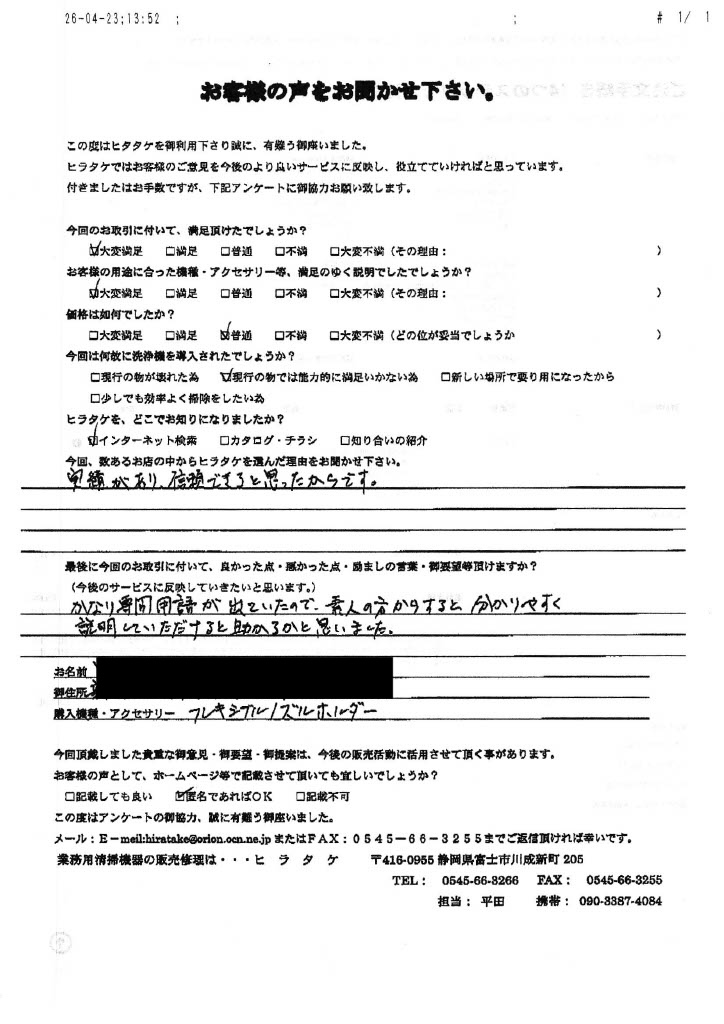 26-04-23;13:52 ; ; # 1/ 1
お客様の声をお聞かせ下さい。
この度はヒタタケを御利用下さり誠に、有難う御座いました。
ヒラタケではお客様のご意見を今後のより良いサービスに反映し、役立てていければと思っています。
付きましたはお手数ですが、下記アンケートに御協力お願い致します。
今回のお取引に付いて、満足頂けたでしょうか？
☑大変満足 □満足 □普通 □不満 □大変不満（その理由： ）
お客様の用途に合った機種・アクセサリー等、満足のゆく説明でしたでしょうか？
☑大変満足 □満足 □普通 □不満 □大変不満（その理由： ）
価格は如何でしたか？
□大変満足 □満足 ☑普通 □不満 □大変不満（どの位が妥当でしょうか ）
今回は何故に洗浄機を導入されたでしょうか？
□現行の物が壊れた為 ☑現行の物では能力的に満足いかない為 □新しい場所で要り用になったから
□少しでも効率よく掃除をしたい為
ヒラタケを、どこでお知りになりましたか？
☑インターネット検索 □カタログ・チラシ □知り合いの紹介
今回、数あるお店の中からヒラタケを選んだ理由をお聞かせ下さい。
実績があり、信頼できると思ったからです。
最後に今回のお取引に付いて、良かった点・悪かった点・励ましの言葉・御要望等頂けますか？
（今後のサービスに反映していきたいと思います。）
かなり専門用語が出ていたので、素人の方からすると分かりやすく
説明していただけると助かるかと思いました。
お名前
御住所
購入機種・アクセサリー フレキシブルノズルホルダー
今回頂戴しました貴重な御意見・御要望・御提案は、今後の販売活動に活用させて頂く事があります。
お客様の声として、ホームページ等で記載させて頂いても宜しいでしょうか？
□記載しても良い ☑匿名であればＯＫ □記載不可
この度はアンケートの御協力、誠に有難う御座いました。
メール：Ｅ－meil:hiratake@orion.ocn.ne.jp またはＦＡＸ：０５４５－６６－３２５５までご返信頂ければ幸いです。
業務用清掃機器の販売修理は・・・ヒ ラ タ ケ 〒416-0955 静岡県富士市川成新町 205
TEL： 0545-66-3266 FAX： 0545-66-3255
担当： 平田 携帯： 090-3387-4084